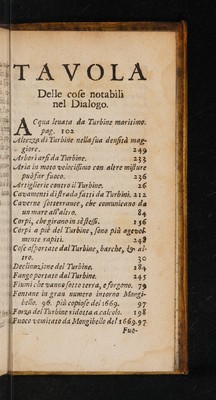 TAVOLA
Delle cose notabili
nel Dialogo.
Acqua leuata da Turbine maritimo.
pag. 102
Altezza di Turbine nella sua densità mag-
giore. 249
Arbori arsi da Turbine. 233
Aria in moto velocissimo con altre misture
può far fuoco. 236
Artiglierie contro il Turbine. 26
Cavamenti di strada fatti da Turbini. 212
Caverne sotterranee, che comunicano da
un mare all'altro. 84
Corpi, che girano in sè stessi. 196
Corpi a piè del Turbine, sono più agevol-
mente rapiti. 248
Cose asportate dal Turbine, barche, & al-
tro. 30
Declinazione del Turbine. 184
Fango portato dal Turbine. 245
Fiumi che vanno sotto terra, e sorgono. 79
Fontane in gran numero intorno Mongi-
bello. 96. più copiose del 1669. 97
Forza del Turbine ridotta a calcolo. 198
Fuoco vomitato da Mongibello del 1669. 97
Fuo-